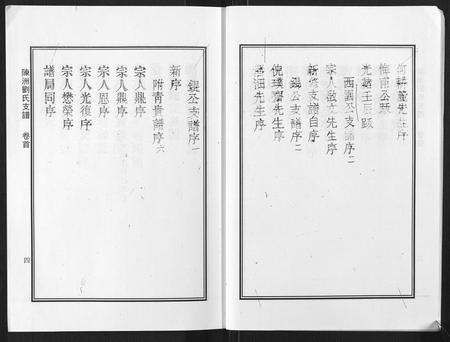 何耕董先生序
梅甫公跋
光緒壬辰跋
西園公支譜序二
宗人敬先生序
新修支譜自序
錕公支譜序二
倪璞齋先生序
潘洄先生序
錕公支譜序一
新序
附青貴譜序六
宗人鼎序
宗人鼎序
宗人恩序
宗人光復序
宗人懋榮序
譜局同序
陳洲劉氏支譜 卷首
四